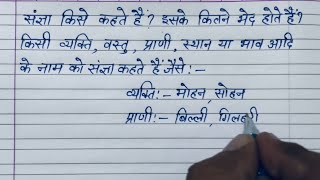 संज्ञा किसे कहते हैं? इसके कितने भेद होते हैं?
किसी व्यक्ति, वस्तु, प्राणी, स्थान या भाव आदि
के नाम को संज्ञा कहते हैं जैसे:-
व्यक्ति:- मोहन, सोहन
प्राणी:- बिल्ली, गिलहरी